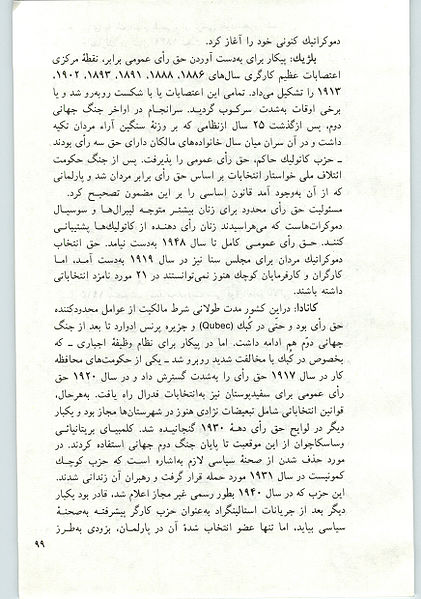 دموکراتیك کنونی خود را آغاز کرد.
بلژیك: پیکار برای به‌دست آوردن حق رأی عمومی برابر، نقطهٔ مرکزی
اعتصابات عظیم کارگری سال‌های ۱۸۸۶، ۱۸۸۸، ۱۸۹۱، ۱۸۹۳، ۱۹۰۲،
۱۹۱۳ را تشکیل می‌داد. تمامی این اعتصابات یا با شکست روبه‌رو شد و یا
برخی اوقات به‌شدت سرکوب گردید. سرانجام در اواخر جنگ جهانی
دوم، پس ازگذشت ۲۵ سال ازنظامی که بر وزنهٔ سنگین آراء مردان تکیه
داشت و در آن سران میان سال خانواده‌های مالکان دارای حق سه رأی بودند
ـ حزب کاتولیك حاکم، حق رأی عمومی را پذیرفت. پس از جنگ حکومت
ائتلاف ملی خواستار انتخابات بر اساس حق رأی برابر مردان شد و پارلمانی
که از آن به‌وجود آمد قانون اساسی را بر این مضمون تصحیح کرد.
مسئولیت حق رأی محدود برای زنان بیشتـر متوجـه لیبرال‌هـا و سوسیـال
دموکرات‌هاست که می‌هراسیدند زنان رأی دهنـده از کاتولیـك‌ها پشتیبانـی
کننـد. حـق رأی عمومـی کامل تا سال ۱۹۴۸ به‌دست نیامد. حق انتخاب
دموکراتیك مردان برای مجلس سنا نیز در سال ۱۹۱۹ به‌دست آمـد، امـا
کارگران و کارفرمایان کوچك هنوز نمی‌توانستند در ۲۱ مورد نامزد انتخاباتی
داشته باشند.
کانادا: دراین کشور مدت طولانی شرط مالکیت از عوامل محدودکننده
حق رأی بود و حتّی در کبك (Qubec) و جزیره پرنس ادوارد تا بعد از جنگ
جهانی دوّم هم ادامه داشت. اما در پیکار برای نظام وظیفهٔ اجباری ـ که
بخصوص در کبك با مخالفت شدید روبرو شد ـ یکی از حکومت‌های محافظه
کار در سال ۱۹۱۷ حق رأی را به‌شدت گسترش داد و در سال ۱۹۲۰ حق
رأی عمومی برای سفیدپوستان نیز به‌انتخابات فدرال راه یافت. به‌هرحال،
قوانین انتخاباتی شامل تبعیضات نژادی هنوز در شهرستان‌ها مجاز بود و یکبار
دیگر در لوایح حق رأی دهـهٔ ۱۹۳۰ گنجانیـده شـد. کلمبیـای بریتانیائـی
وساسکاچوان از این موقعیت تا پایان جنگ دوم جهانی استفاده کردند. در
مورد حذف شدن از صحنهٔ سیاسی لازم به‌اشاره اسـت که حزب کوچـك
کمونیست در سال ۱۹۳۱ مورد حمله قرار گرفت و رهبران آن زندانی شدند.
این حزب که در سال ۱۹۴۰ بطور رسمی غیر مجاز اعلام شد، قادر بود یکبار
دیگر بعد از جریانات استالینگراد به‌عنوان حزب کارگر پیشرفتـه به‌صحنـهٔ
سیاسی بیاید، اما تنها عضو انتخاب شدهٔ آن در پارلمـان، بزودی به‌طـرز
۹۹